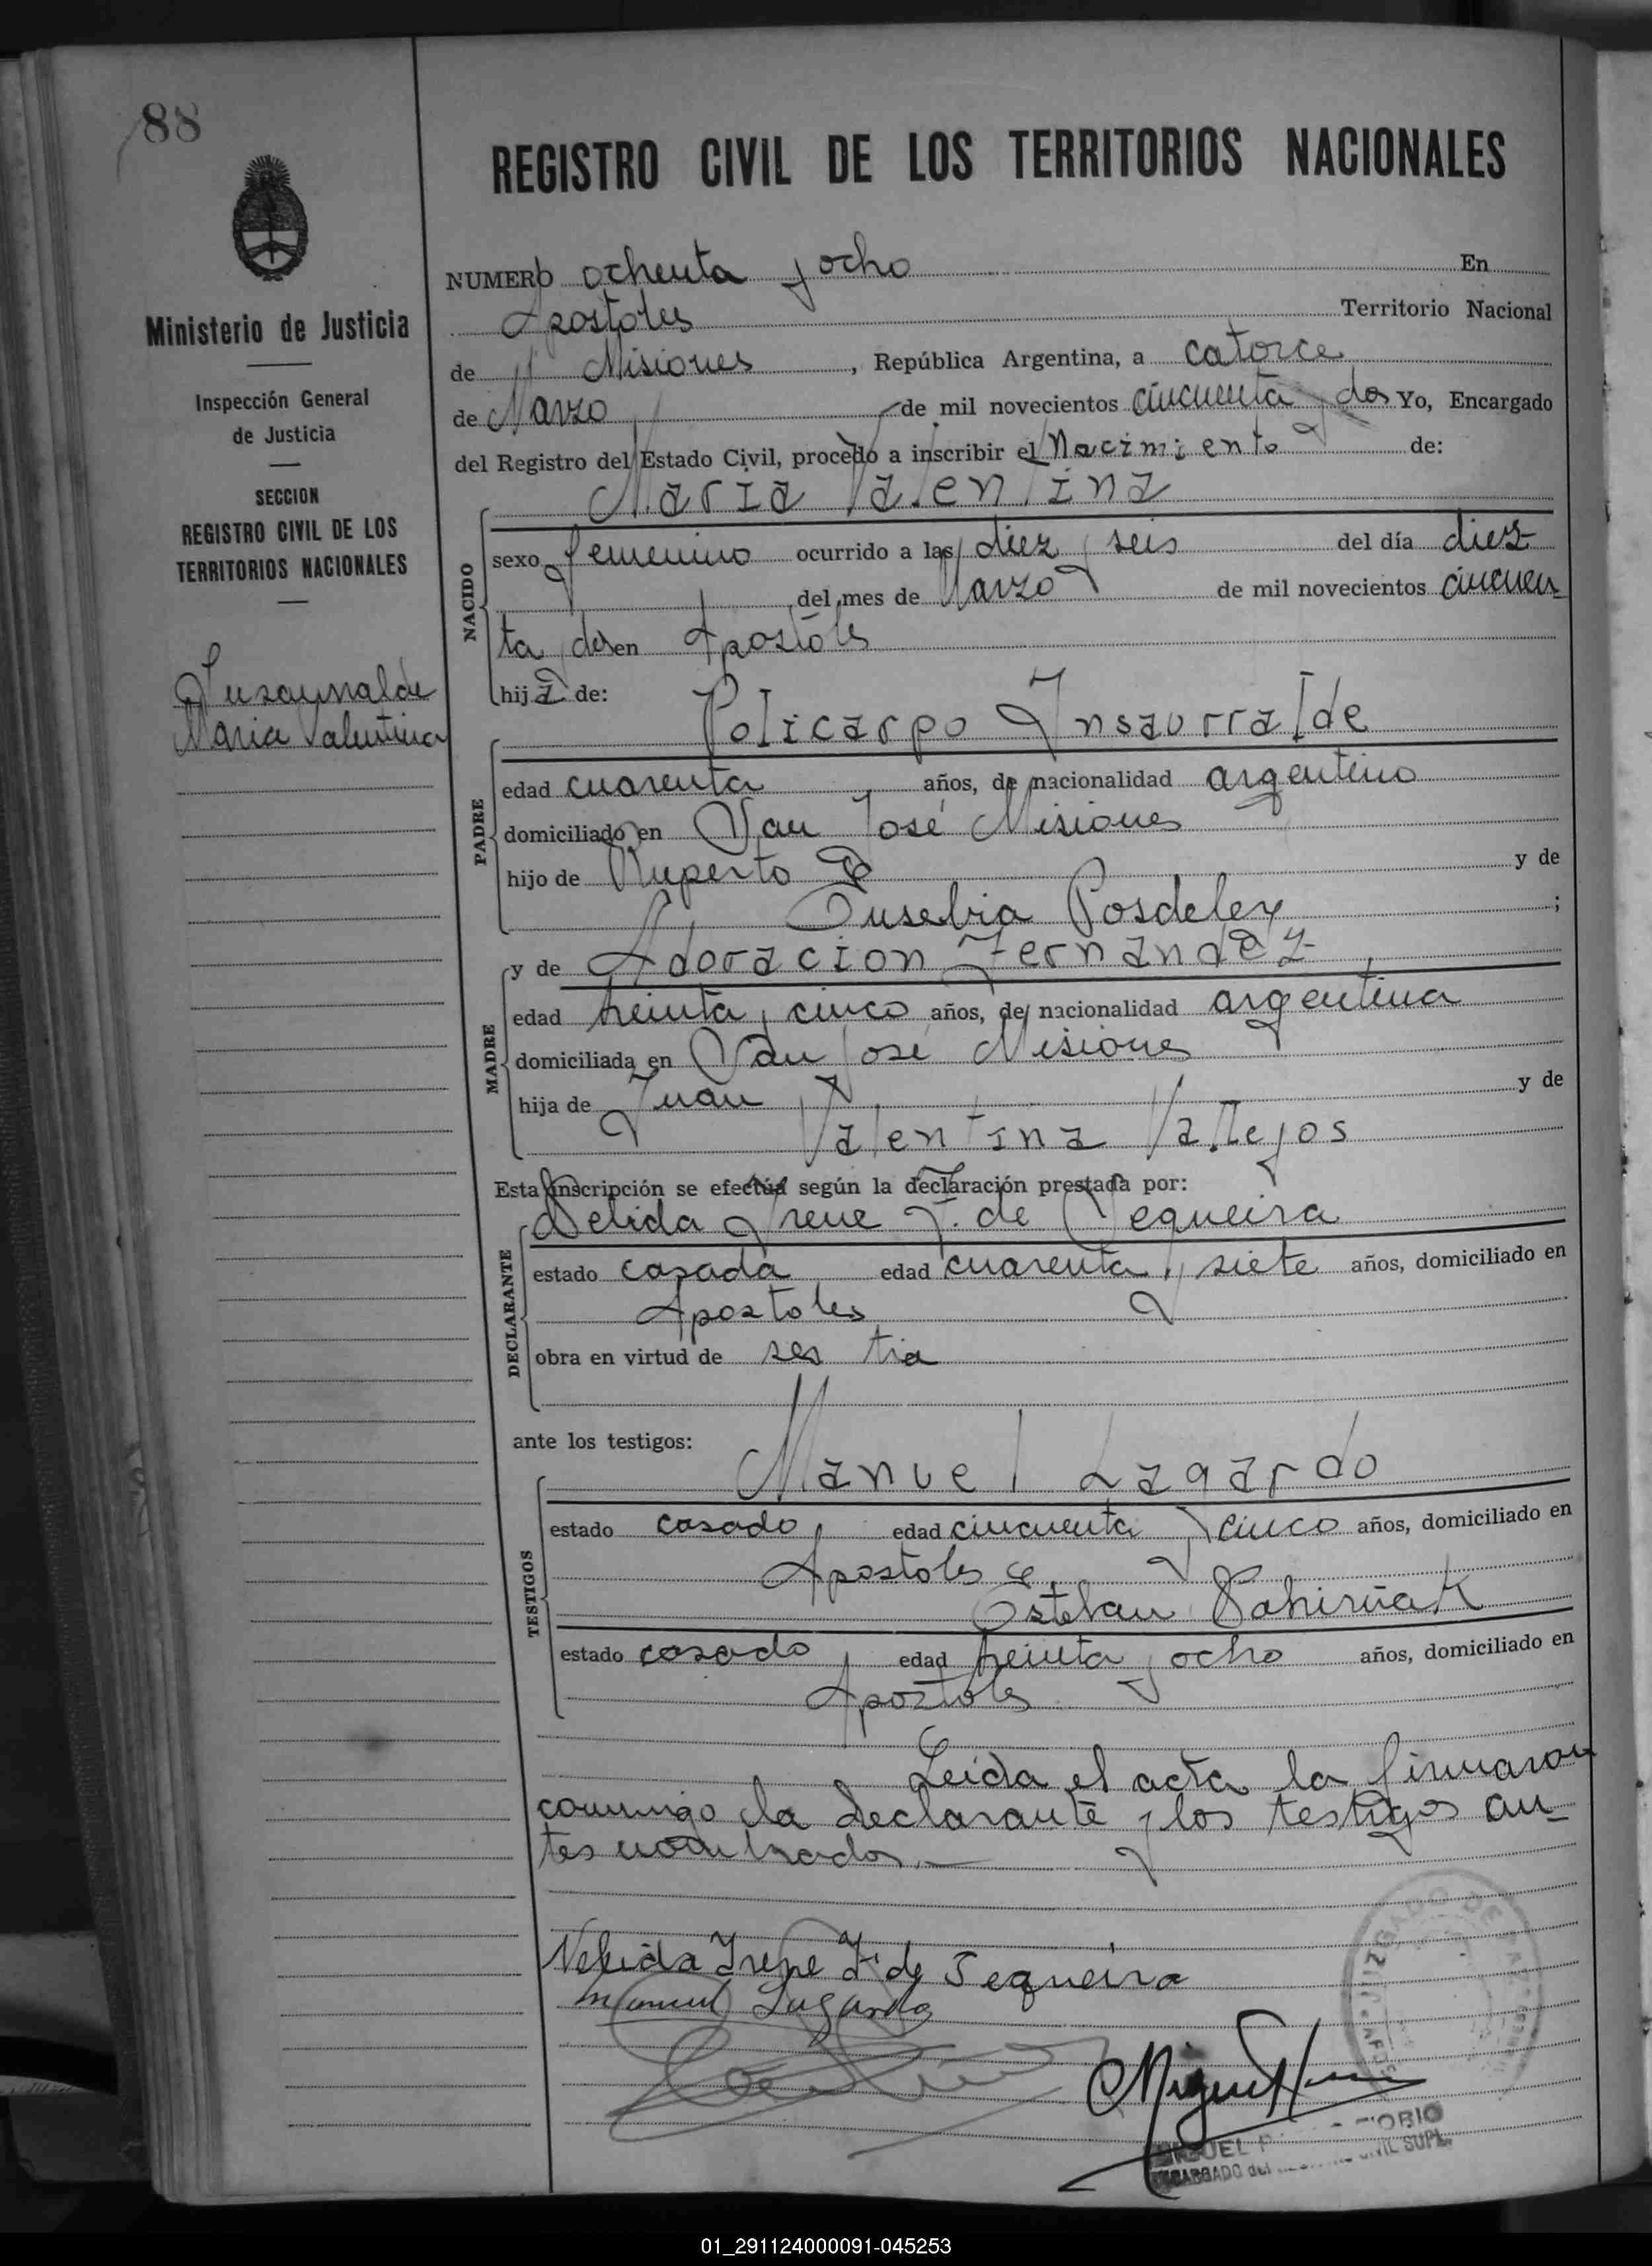 88
REGISTRO CIVIL DE LOS TERRITORIOS NACIONALES
Ministerio de Justicia
Inspección General
de Justicia
SECCION
REGISTRO CIVIL DE LOS
TERRITORIOS NACIONALES
Insaurralde
Maria Valentina
NUMERO ochenta y ocho En
Apostoles Territorio Nacional
de Misiones, República Argentina, a catorce
de Marzo de mil novecientos cincuenta y dos Yo, Encargado
del Registro del Estado Civil, procedo a inscribir el Nacimiento de:
Maria Valentina
NACIDO
sexo femenino ocurrido a las diez y seis del día diez
del mes de Marzo de mil novecientos cincuen
ta y dos en Apostoles
hija de:
Policarpo Insaurralde
PADRE
edad cuarenta años, de nacionalidad argentino
domiciliado en San José Misiones
hijo de Ruperto I y de
Eusebia Posdeley;
y de Adoracion Fernandez
MADRE
edad treinta y cinco años, de nacionalidad argentina
domiciliada en San José Misiones
hija de Juan F. y de
Valentina Vallejos
Esta inscripción se efectúa según la declaración prestada por:
Nelida Irene F. de Sequeira
DECLARANTE
estado casada edad cuarenta y siete años, domiciliado en
Apostoles
obra en virtud de ser tia
ante los testigos:
Manuel Lagardo
TESTIGOS
estado casado, edad cincuenta y cinco años, domiciliado en
Apostoles e,
Esteban
estado casado, edad treinta y ocho años, domiciliado en
Apostoles
Leida el acta la firmaron
conmigo la declarante y los testigos an
tes nombrados.—
Nelida Irene F. de Sequeira
Manuel Lagardo
JUZGADO DE
MIGUEL
ENCARGADO del CIVIL SUPL.
01_291124000091-045253